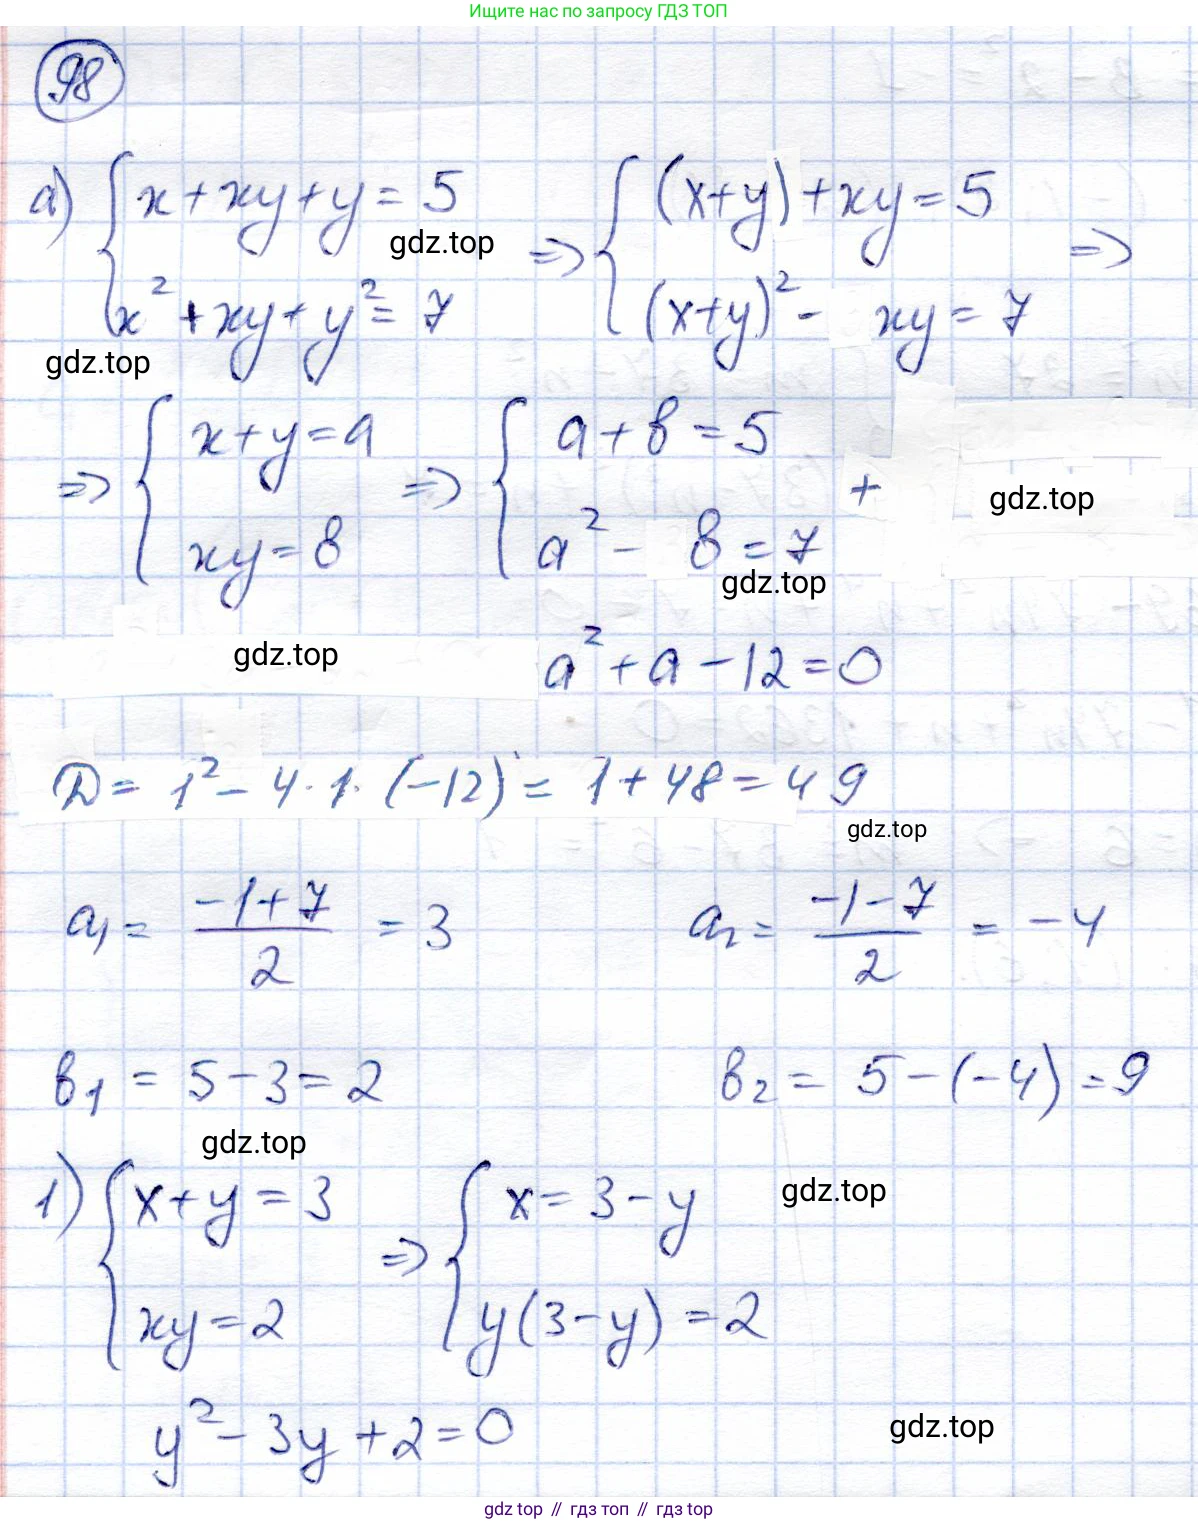 Ищите нас по запросу ГДЗ ТОП
98
а) { x + xy + y = 5 ; x² + xy + y² = 7 => { (x+y) + xy = 5 ; (x+y)² - xy = 7 =>
gdz.top
gdz.top
=> { x + y = a ; xy = в => { a + в = 5 ; a² - в = 7 +
gdz.top
gdz.top
gdz.top
a² + a - 12 = 0
D = 1² - 4 · 1 · (-12) = 1 + 48 = 49
gdz.top
a₁ = (-1+7)/2 = 3 a₂ = (-1-7)/2 = -4
в₁ = 5 - 3 = 2 в₂ = 5 - (-4) = 9
gdz.top
1) { x + y = 3 ; xy = 2 => { x = 3 - y ; y(3 - y) = 2
gdz.top
y² - 3y + 2 = 0
gdz.top
gdz top // гдз топ // gdz top